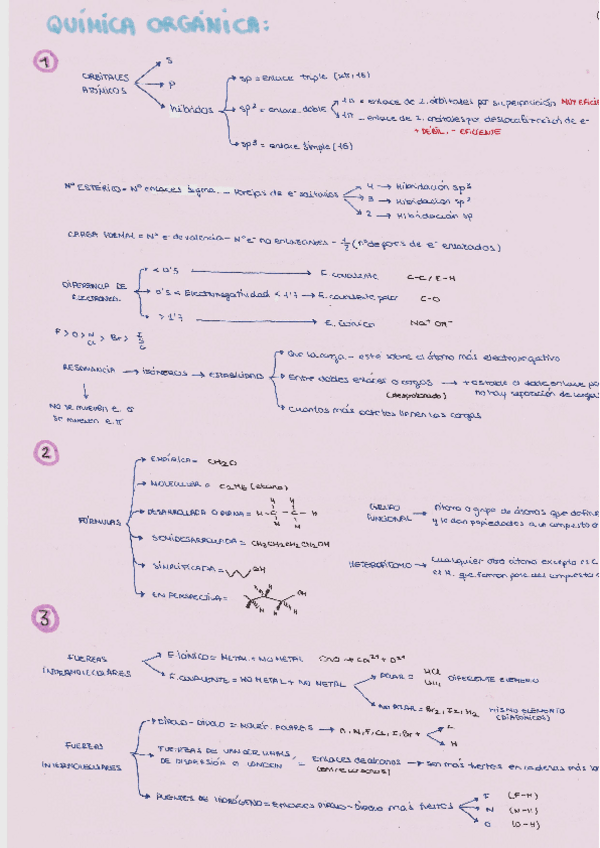 QUÍMICA ORGÁNICA:
1
ORBITALES ATÓMICOS
S
P
híbridos
sp = enlace triple (2π, 1σ)
sp² = enlace doble
1σ = enlace de 2 orbitales por superposición MUY EFICIE
1π = enlace de 2 orbitales por deslocalización de e-
+ DÉBIL, - EFICIENTE
sp³ = enlace simple (1σ)
Nº ESTÉRICO = Nº enlaces sigma - parejas de e- solitarios
4 → Hibridación sp³
3 → Hibridación sp²
2 → Hibridación sp
CARGA FORMAL = Nº e- de valencia - Nº e- no enlazantes - 1/2 (nº de pares de e- enlazados)
DIFERENCIA DE ELECTRONEG.
< 0'5 → E. covalente C-C / C-H
0'5 < Electronegatividad < 1'7 → E. covalente polar C-O
> 1'7 → E. iónico Na+ OH-
F > O > N Cl > Br > I S C
RESONANCIA → ISÓMEROS → ESTABILIDAD
Que la carga - esté sobre el átomo más electronegativo
Entre dobles enlaces o cargas (desapareado) → + estable el doble enlace por
no hay separación de cargas
Cuantos más octetos tienen las cargas
NO se mueven e- σ
se mueven e- π
2
FÓRMULAS
EMPÍRICA = CH2O
MOLECULAR = C2H6 (etano)
DESARROLLADA O PLANA = H-C-C-H
H H
H H
SEMIDESARROLLADA = CH3CH2CH2CH2OH
SIMPLIFICADA = OH
EN PERSPECTIVA = OH
GRUPO FUNCIONAL → Átomo o grupo de átomos que define
y le dan propiedades a un compuesto o
HETEROÁTOMO → Cualquier otro átomo excepto el C
el H. que forman parte del compuesto o
3
FUERZAS INTRAMOLECULARES
E. IÓNICO = METAL + NO METAL CaO → Ca2+ + O2-
E. COVALENTE = NO METAL + NO METAL
POLAR = HCl DIFERENTE ELEMENTO
NO POLAR = Br2, I2, H2 MISMO ELEMENTO
(DIATÓMICOS)
FUERZAS INTERMOLECULARES
DIPOLO - DIPOLO = MOLÉC. POLARES → O, N, F, Cl, I, Br +
C
H
FUERZAS DE VAN DER WAALS,
DE DISPERSIÓN O LONDON = Enlaces de alcanos → son más fuertes en cadenas más la
PUENTES DE HIDRÓGENO = ENLACES DIPOLO - DIPOLO MÁS FUERTES
F (F-H)
N (N-H)
O (O-H)